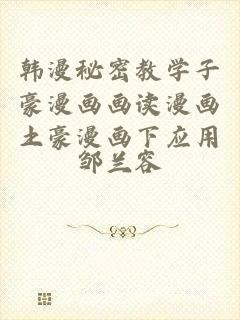 韩漫秘密教学子
豪漫画画读漫画
土豪漫画下应用
邹兰容